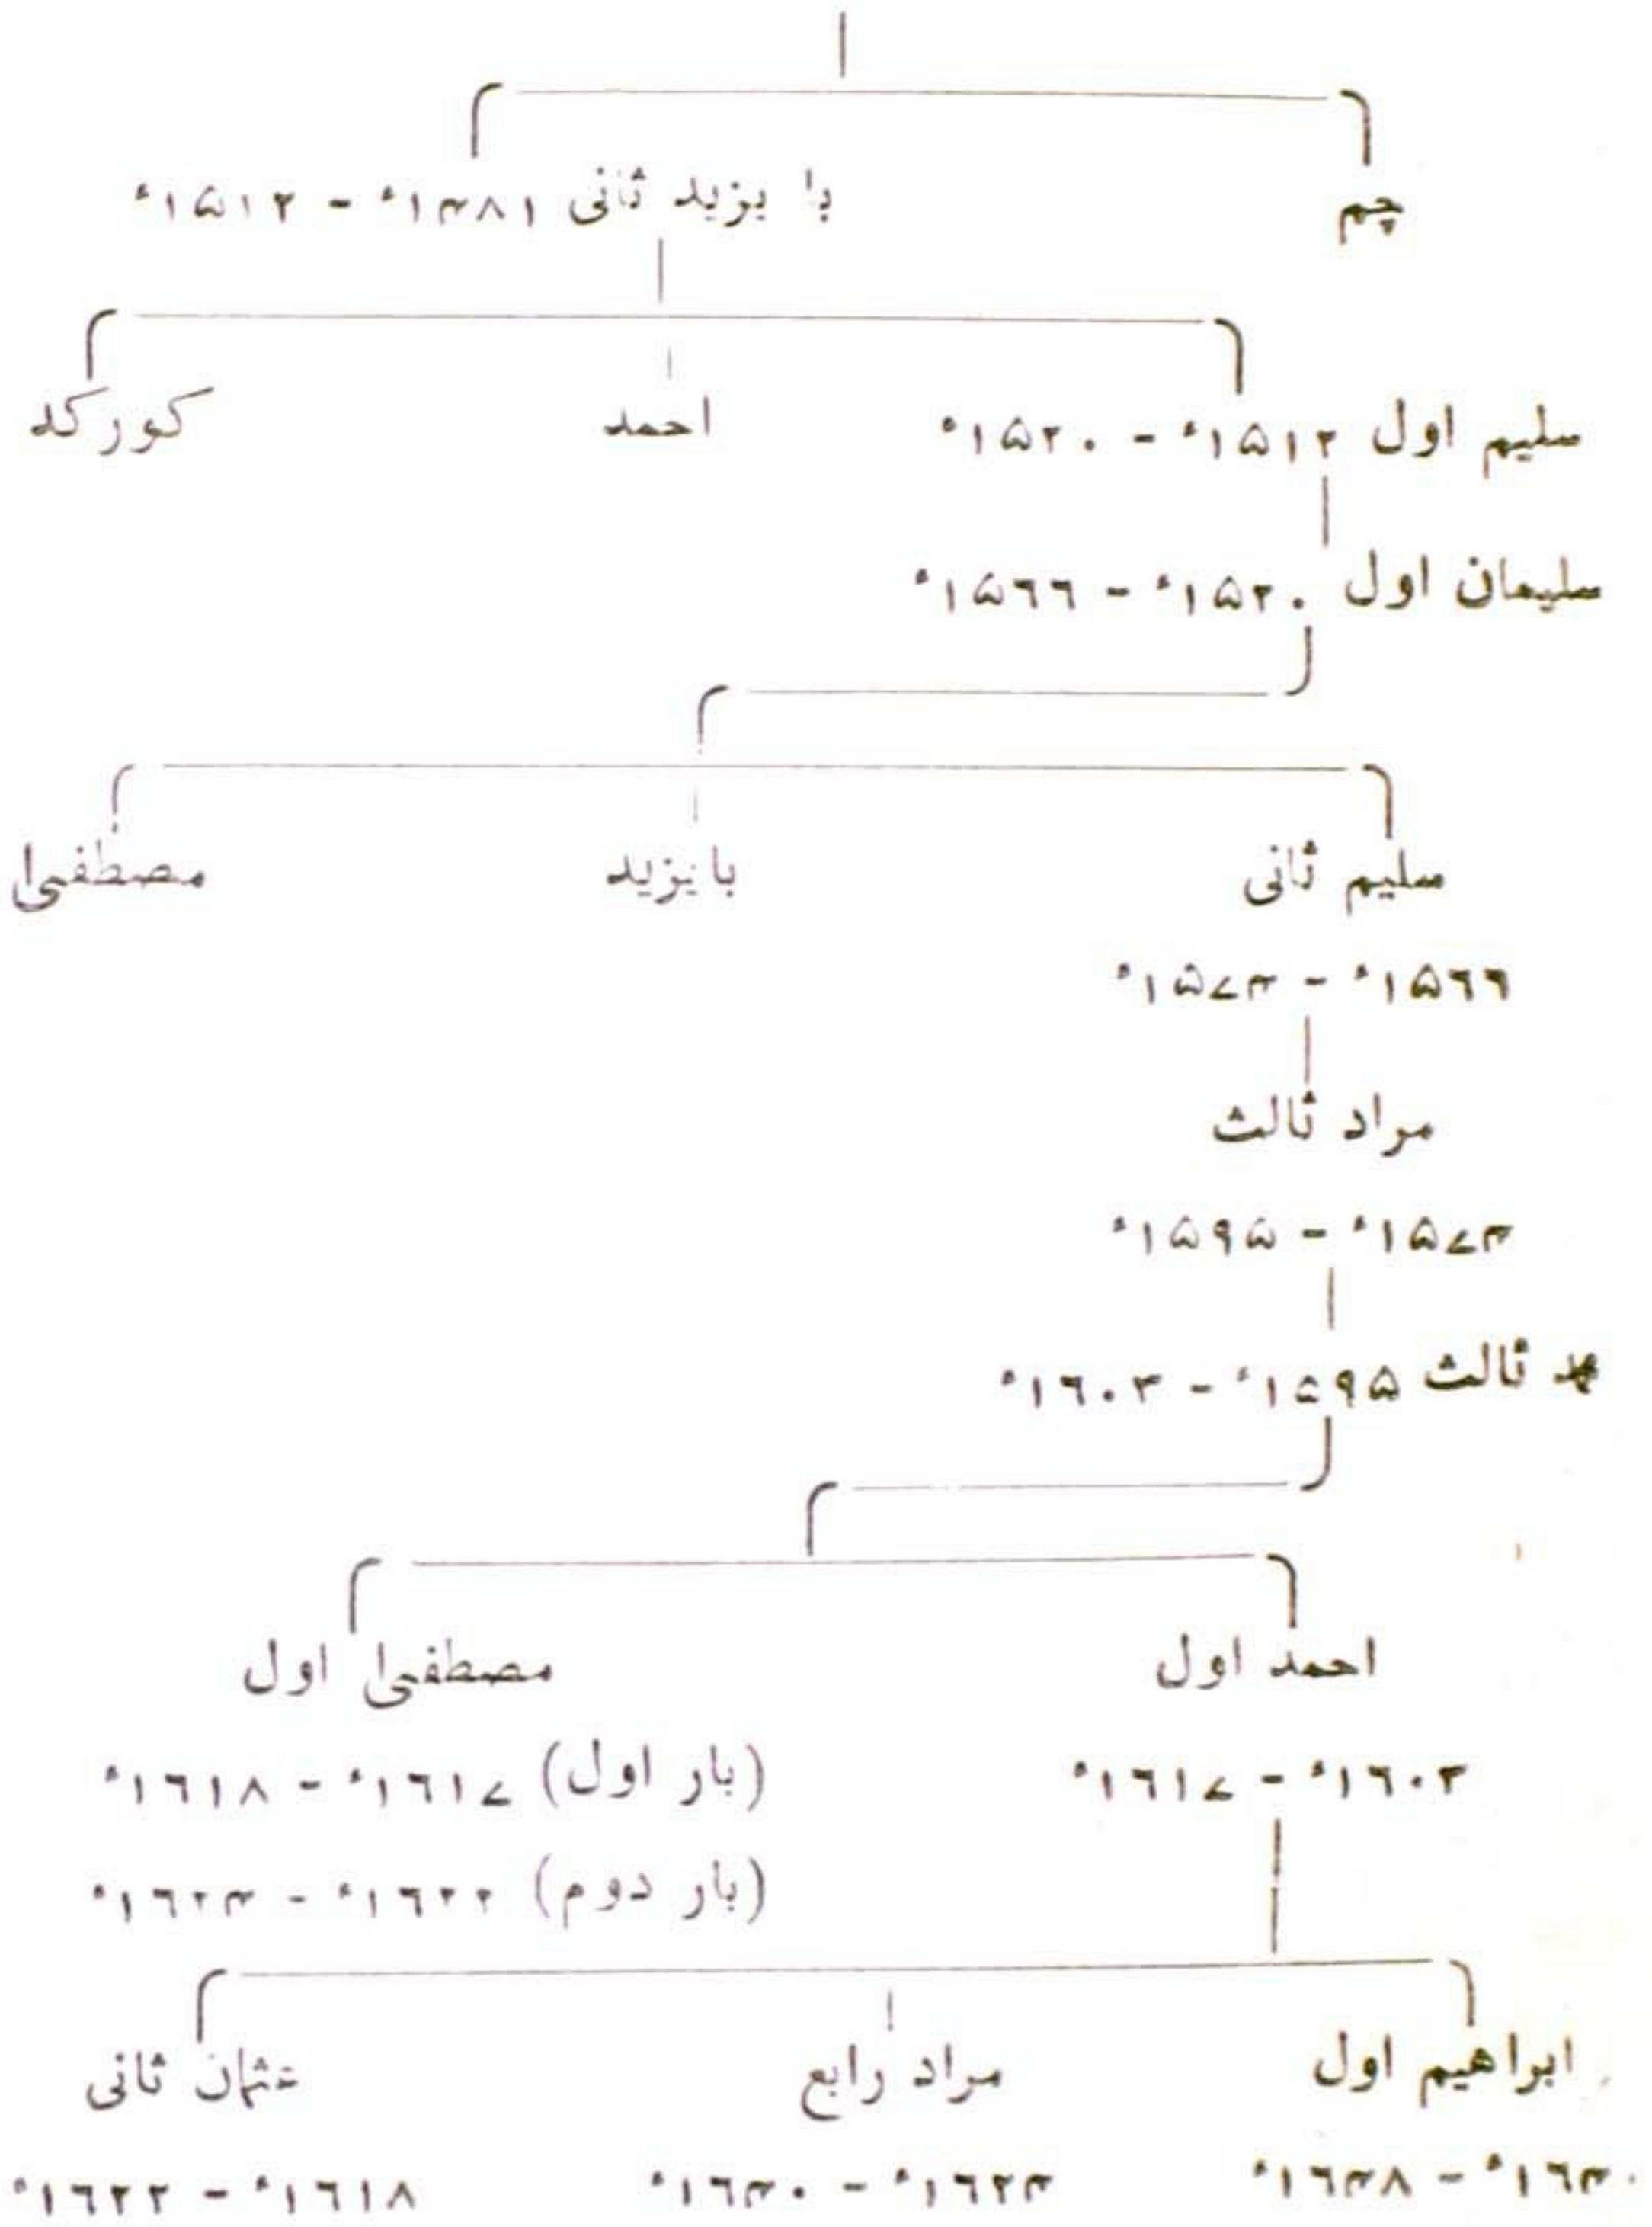 چم
با یزید ثانی ۱۴۸۱ء - ۱۵۱۲ء
سلیم اول ۱۵۱۲ء - ۱۵۲۰ء
احمد
کورکد
سلیمان اول ۱۵۲۰ء - ۱۵۶۶ء
سلیم ثانی
بایزید
مصطفیٰ
۱۵۶۶ء - ۱۵۷۴ء
مراد ثالث
۱۵۷۴ء - ۱۵۹۵ء
محمد ثالث ۱۵۹۵ء - ۱۶۰۳ء
احمد اول
مصطفیٰ اول
۱۶۰۳ء - ۱۶۱۷ء
(بار اول) ۱۶۱۷ء - ۱۶۱۸ء
(بار دوم) ۱۶۲۲ء - ۱۶۲۴ء
ابراهیم اول
مراد رابع
عثمان ثانی
۱۶۴۰ء - ۱۶۴۸ء
۱۶۲۴ء - ۱۶۴۰ء
۱۶۱۸ء - ۱۶۲۲ء